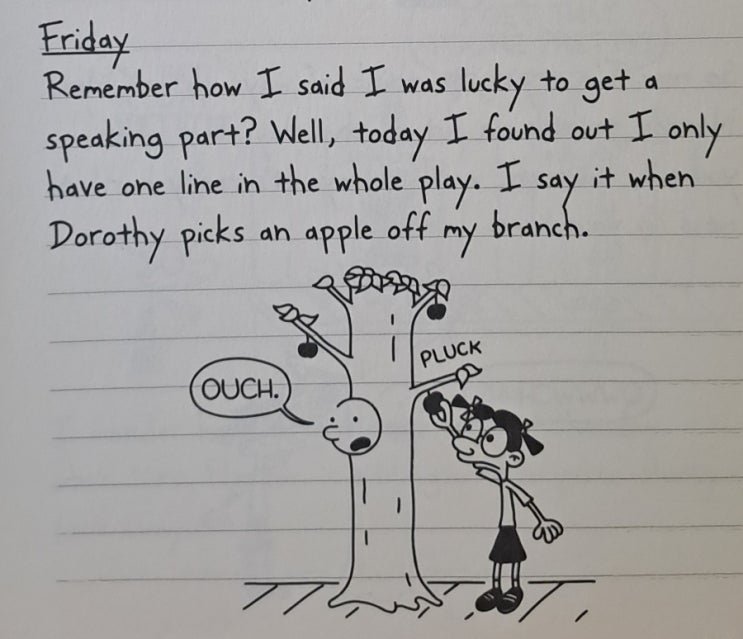 Friday
Remember how I said I was lucky to get a
speaking part? Well, today I found out I only
have one line in the whole play. I say it when
Dorothy picks an apple off my branch.
PLUCK
OUCH.